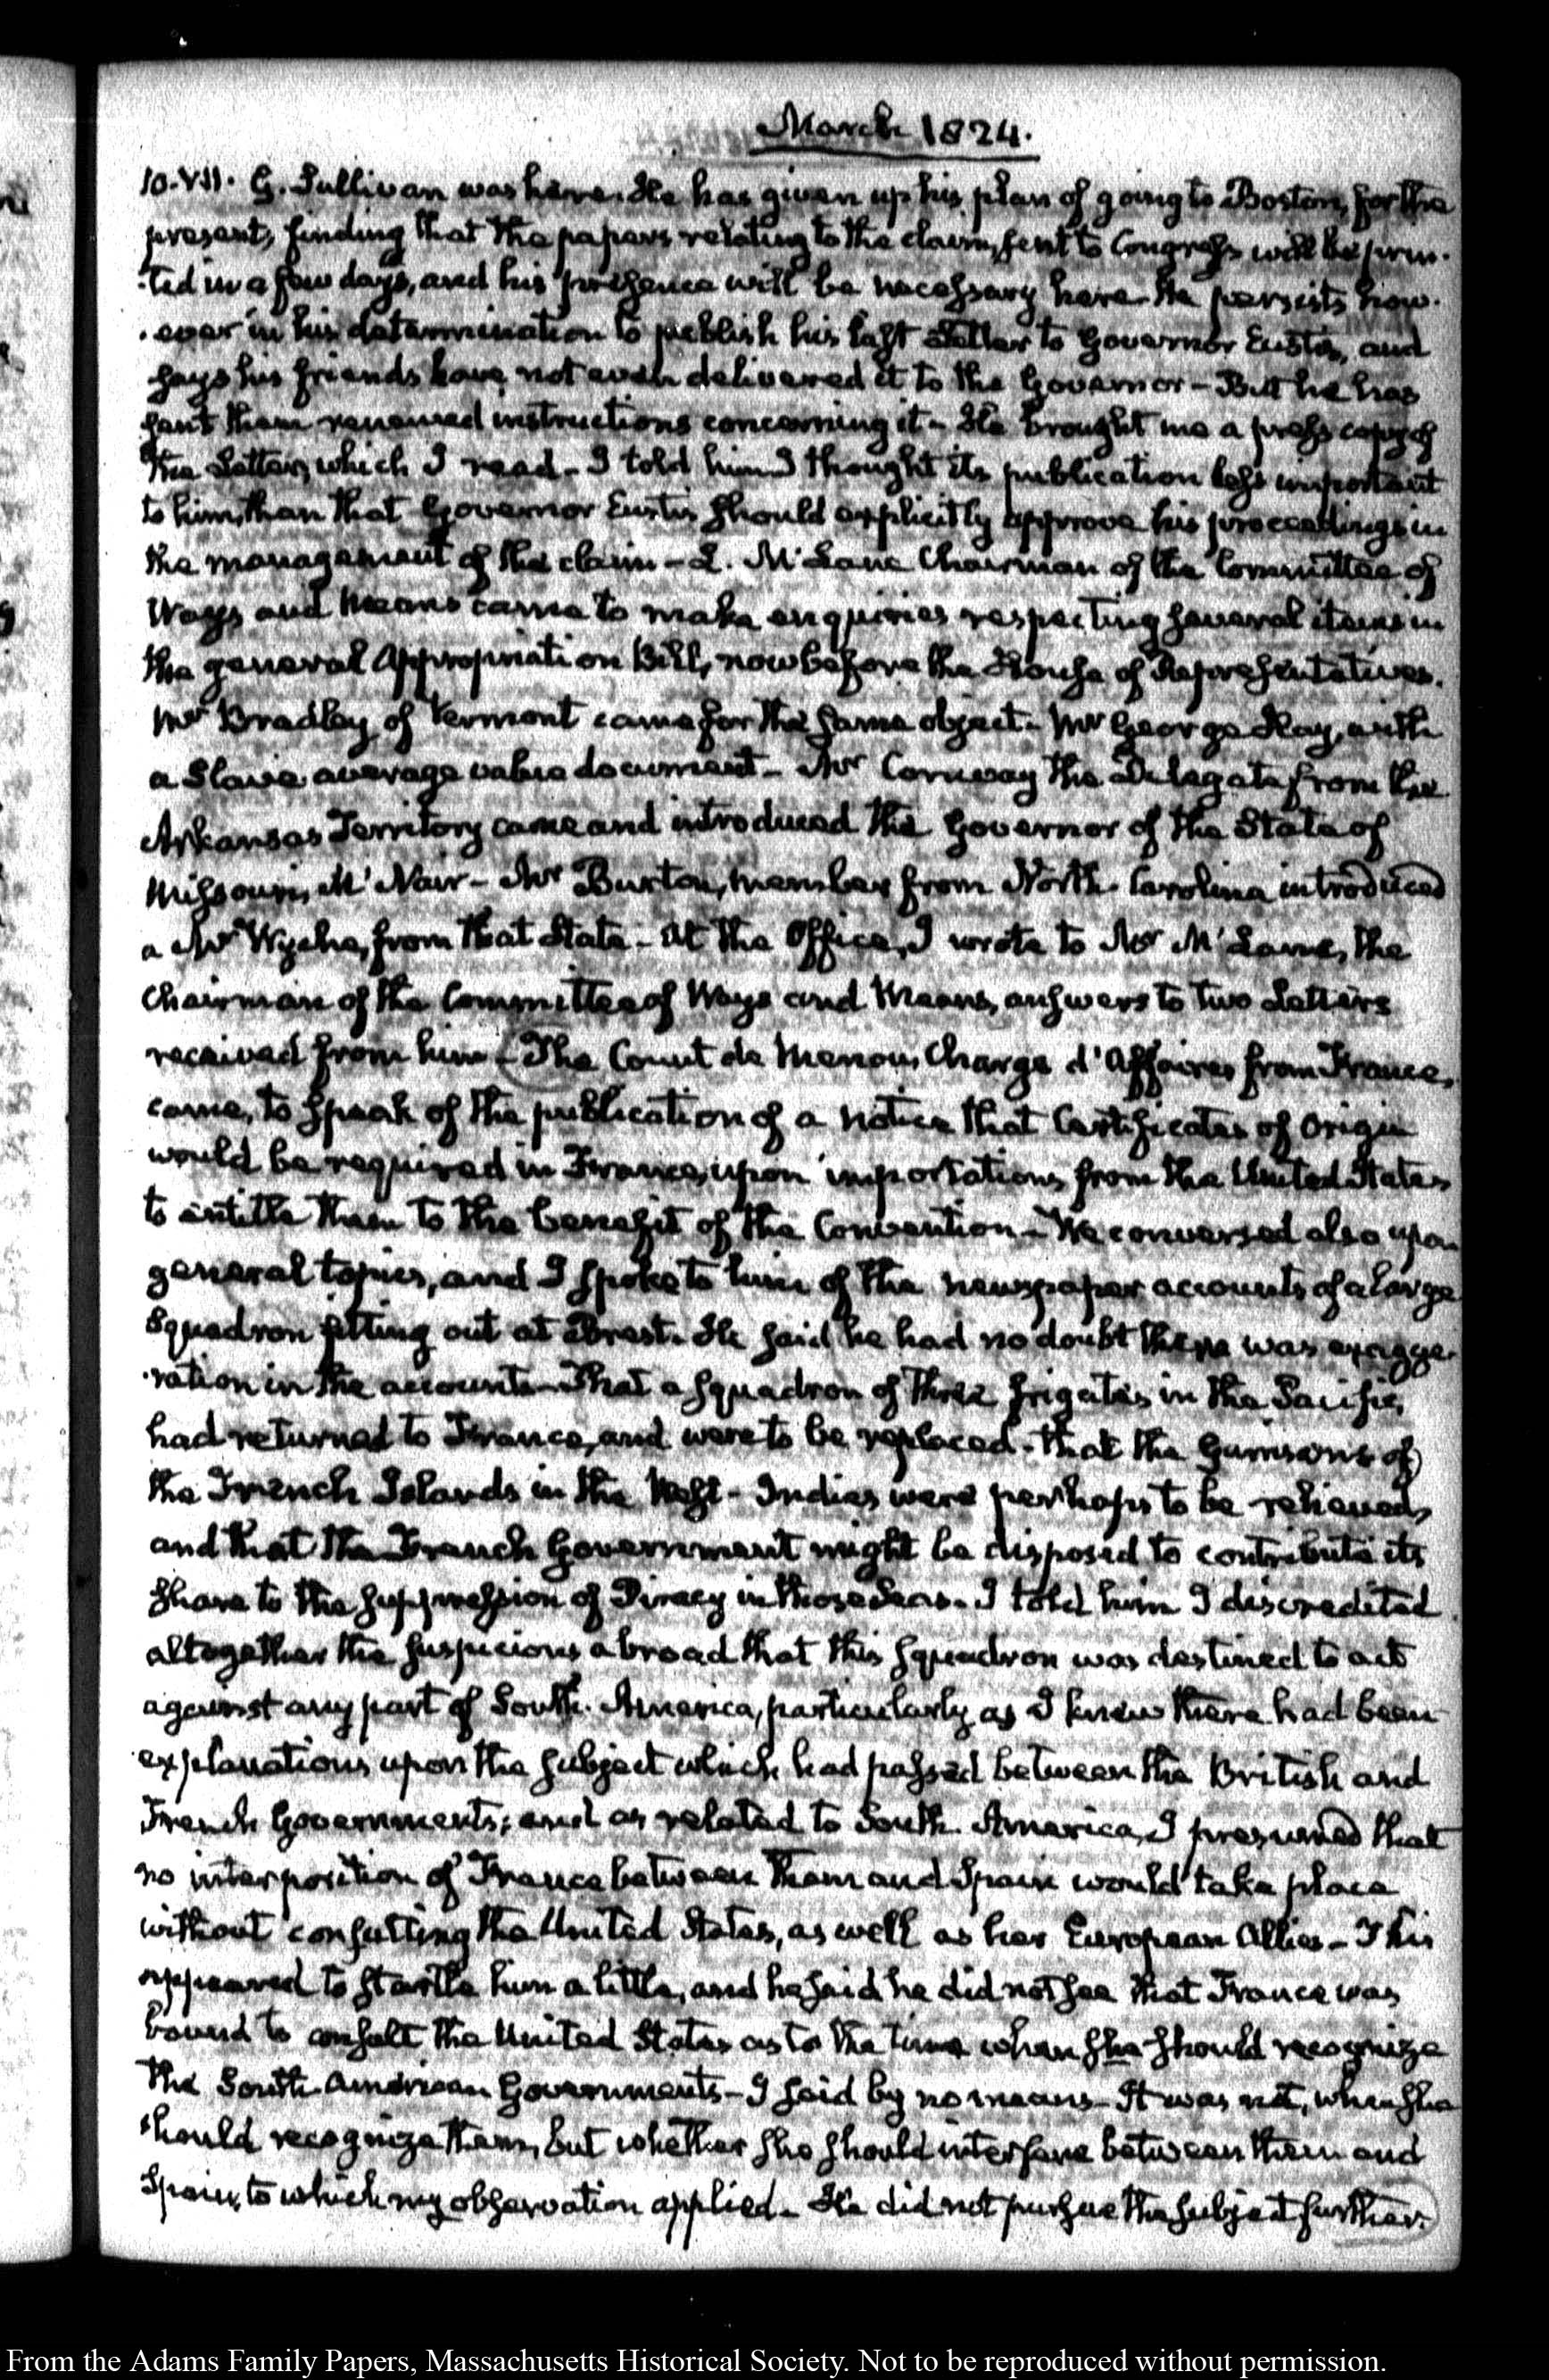 March 1824.
10. VII. G. Sullivan was here. He has given up his plan of going to Boston, for the
present, finding that the papers relating to the claim, sent to Congress will be prin-
-ted in a few days, and his presence will be necessary here. He persists how-
-ever in his determination to publish his last Letter to Governor Eustis, and
says his friends have not even delivered it to the Governor – But he has
sent them renewed instructions concerning it – He brought me a press copy of
the Letter, which I read – I told him I thought its publication less important
to him, than that Governor Eustis should explicitly approve his proceedings in
the management of the claim – L. McLane Chairman of the Committee of
Ways and Means came to make enquiries respecting several items in
the general Appropriation Bill, now before the House of Representatives.
Mr Bradley of Vermont came for the same object – Mr George Hay, with
a Slave average value document – Mr Conway the Delegate from the
Arkansas Territory came and introduced the Governor of the State of
Missouri, McNair – Mr Burton, member from North-Carolina introduced
a Mr Wyche, from that State – At the Office, I wrote to Mr McLane, the
Chairman of the Committee of Ways and Means, answers to two Letters
received from him – The Count de Menou, Charge d'Affaires from France,
came, to speak of the publication of a notice that Certificates of Origin
would be required in France, upon importations from the United States
to entitle them to the benefit of the Convention – We conversed also upon
general topics, and I spoke to him of the newspaper accounts of a large
Squadron fitting out at Brest. He said he had no doubt there was exagge-
-ration in the accounts – That a squadron of three frigates in the Pacific,
had returned to France, and were to be replaced – that the Garrisons of
the French Islands in the West-Indies were perhaps to be relieved,
and that the French Government might be disposed to contribute its
share to the suppression of Piracy in those Seas. I told him I discredited
altogether the suspicions abroad that this squadron was destined to act
against any part of South-America, particularly as I knew there had been
explanations upon the subject which had passed between the British and
French Governments; and as related to South-America, I presumed that
no interposition of France between them and Spain would take place
without consulting the United States, as well as her European Allies – This
appeared to startle him a little, and he said he did not see that France was
bound to consult the United States as to the time when she should recognize
the South-American Governments – I said by no means – It was not, when she
should recognize them, but whether she should interfere between them and
Spain, to which my observation applied – He did not pursue the subject further.
From the Adams Family Papers, Massachusetts Historical Society. Not to be reproduced without permission.